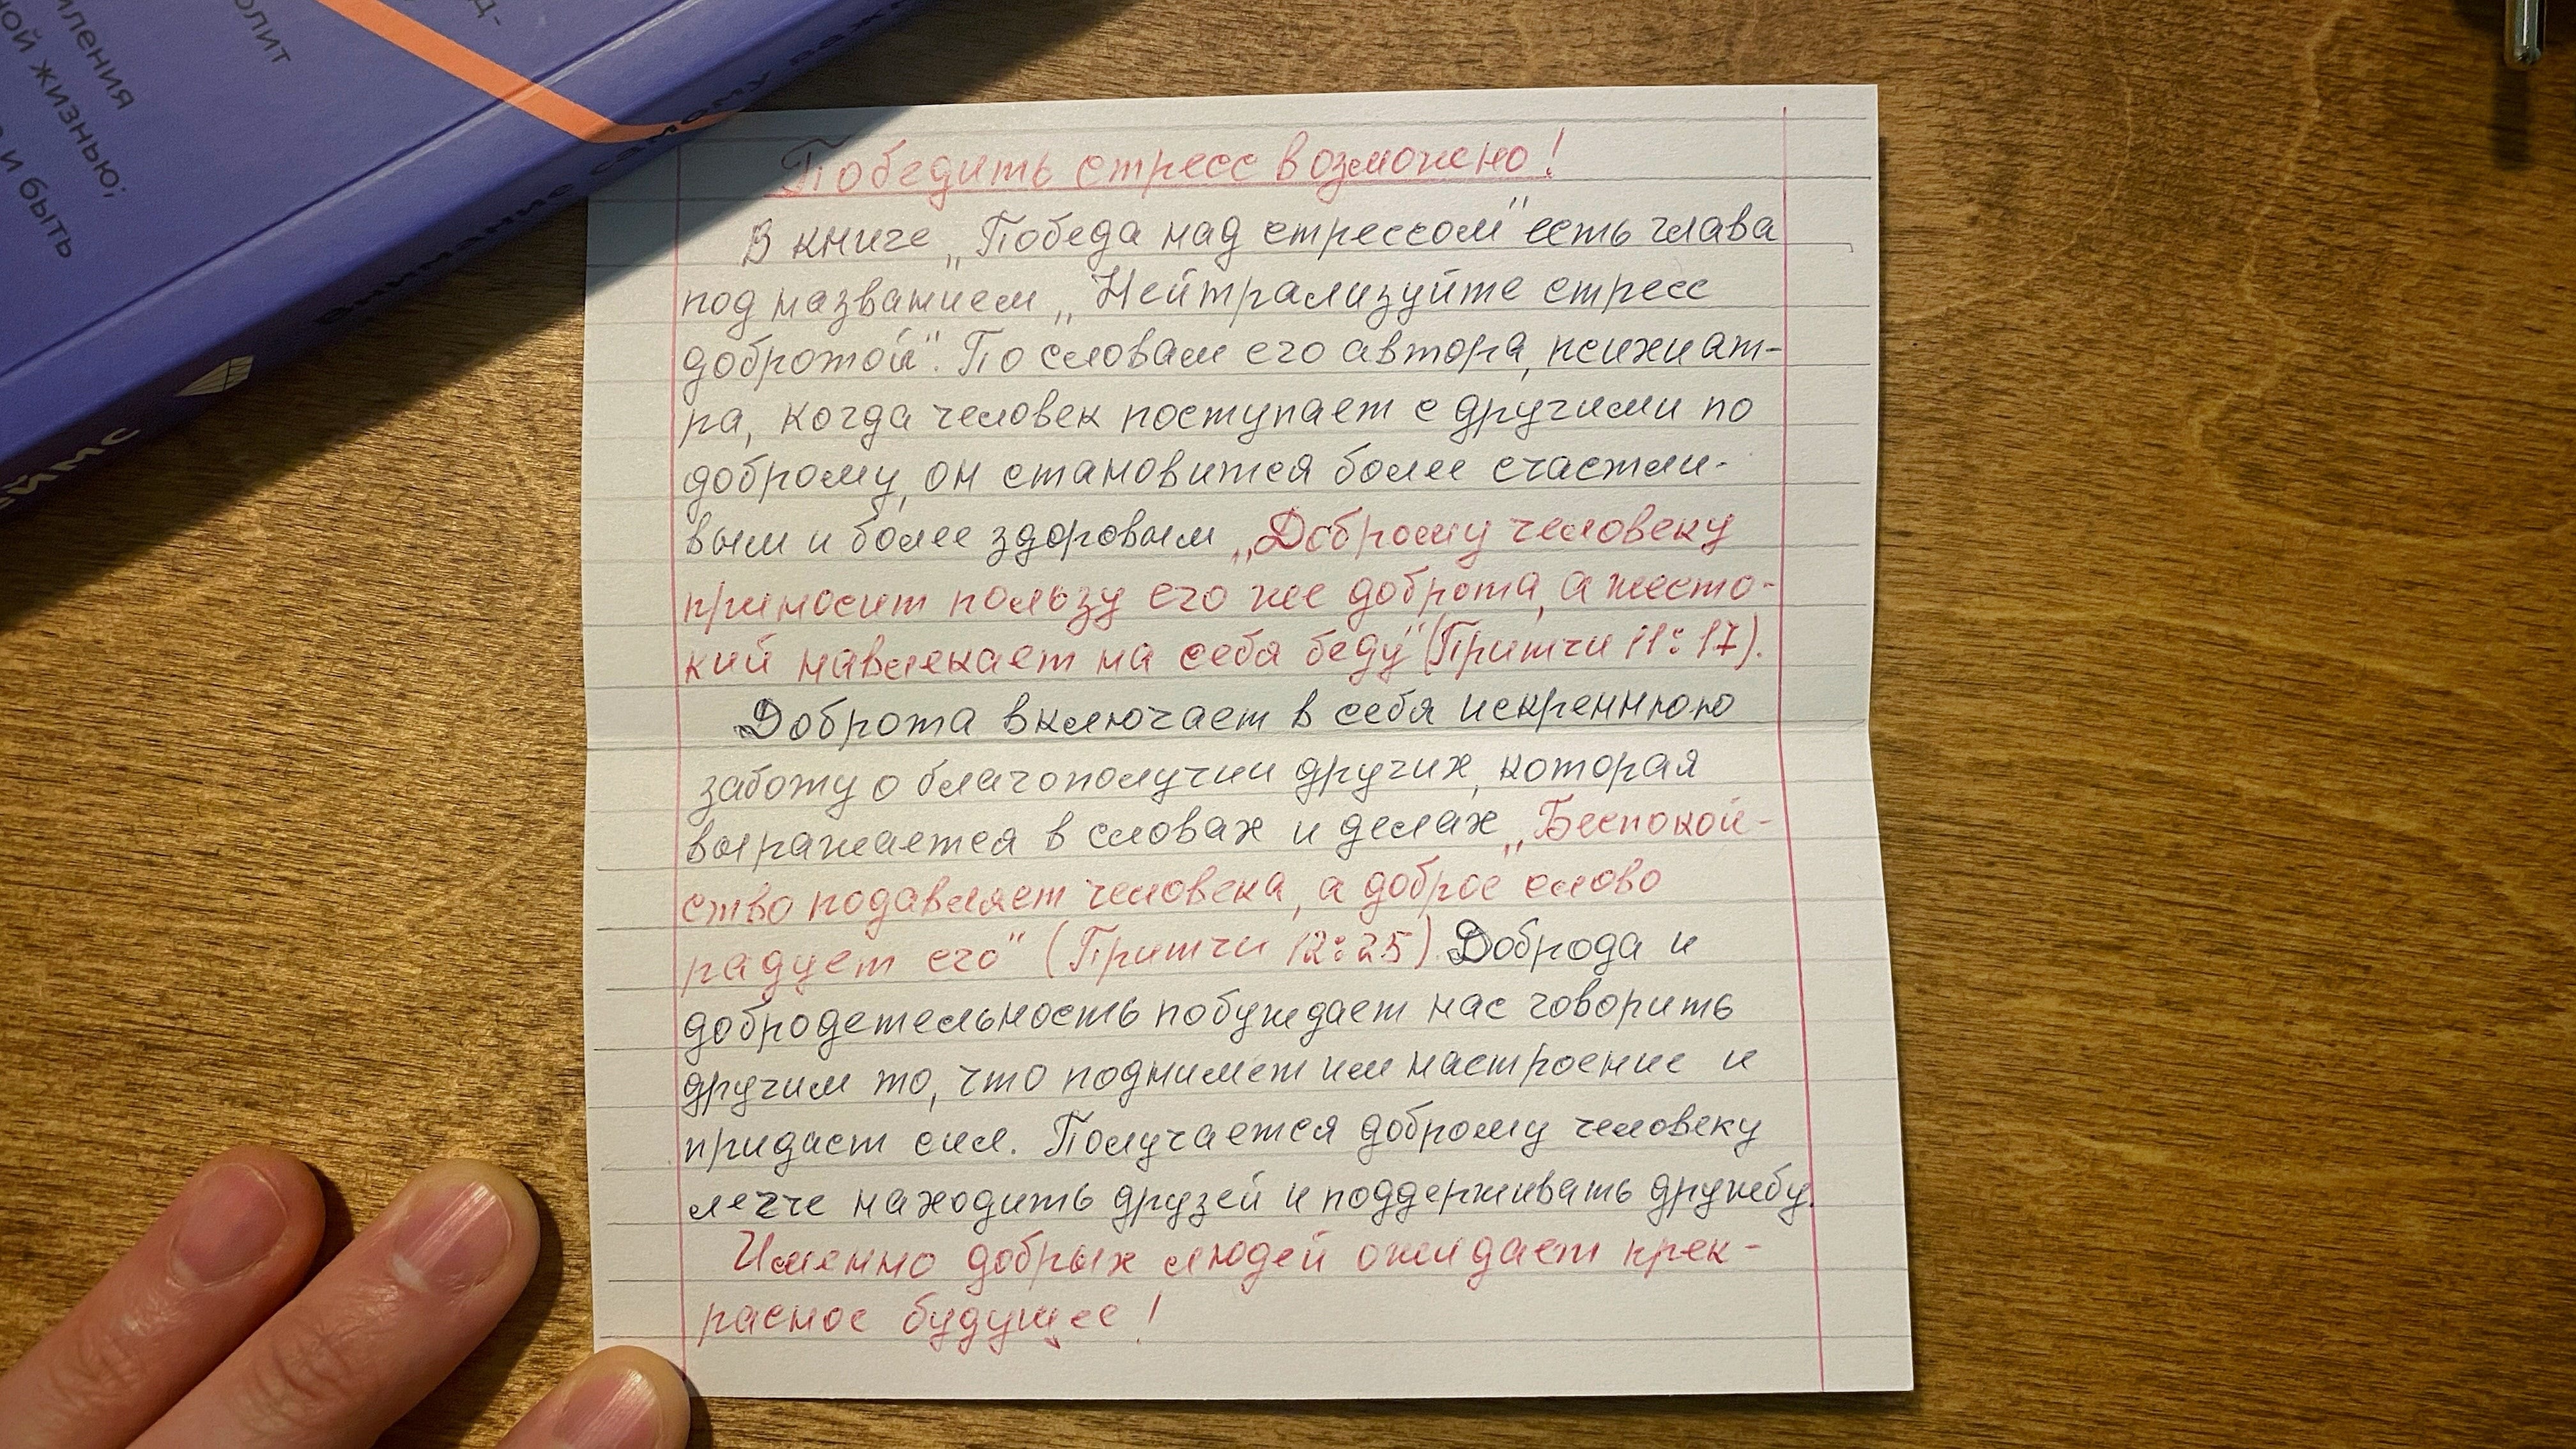 мления
ной жизнью;
и быть
олит
д-
Внимание самому важн
ймс
Победить стресс возможно!
В книге „Победа над стрессом" есть глава
под названием „Нейтрализуйте стресс
добротой". По словам его автора, психиат-
ра, когда человек поступает с другими по
доброму, он становится более счастли-
вым и более здоровым „Доброму человеку
приносит пользу его же доброта, а жесто-
кий навлекает на себя беду" (Притчи 11:17).
Доброта включает в себя искреннюю
заботу о благополучии других, которая
выражается в словах и делах „Беспокой-
ство подавляет человека, а доброе слово
радует его" (Притчи 12:25). Доброда и
добродетельность побуждает нас говорить
другим то, что поднимет им настроение и
придаст сил. Получается доброму человеку
легче находить друзей и поддерживать дружбу.
Именно добрых людей ожидает прек-
расное будущее!